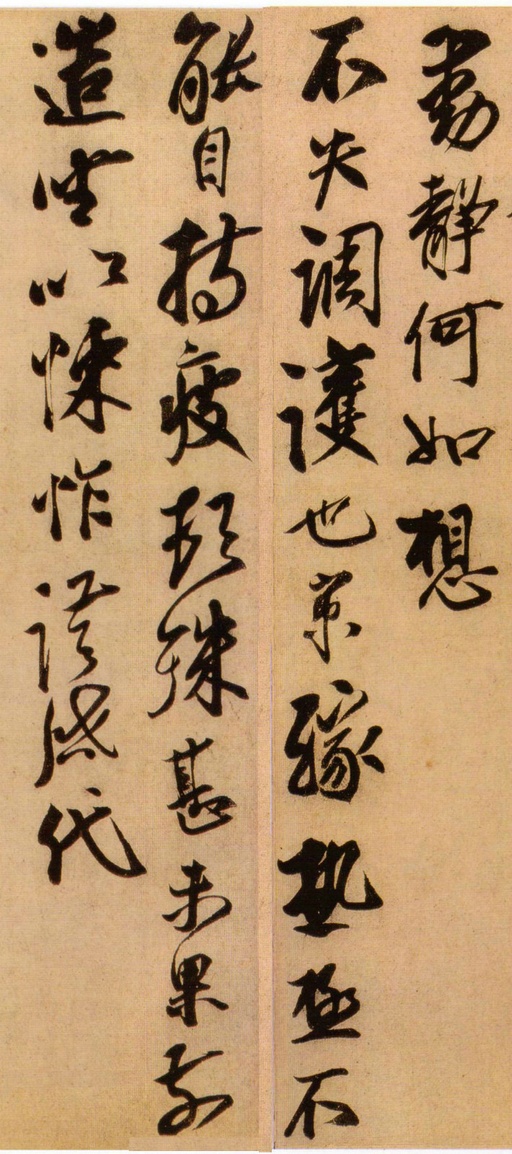 動靜何如想
不失調護也京緣熱極不
能自持疲頓殊甚未果前
造坐以悚怍謹啓代